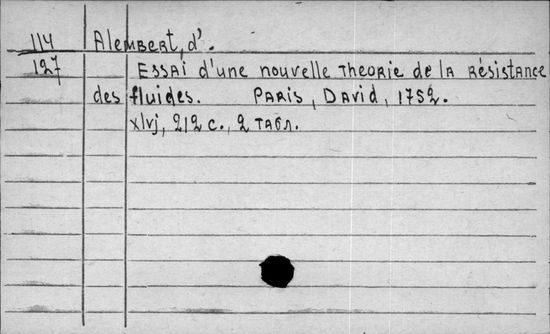 114 Alembert, d'.
127 Essai d'une nouvelle theorie de la résistance
des fluides. Paris, David, 1752.
xlvj, 212 с., 2 табл.